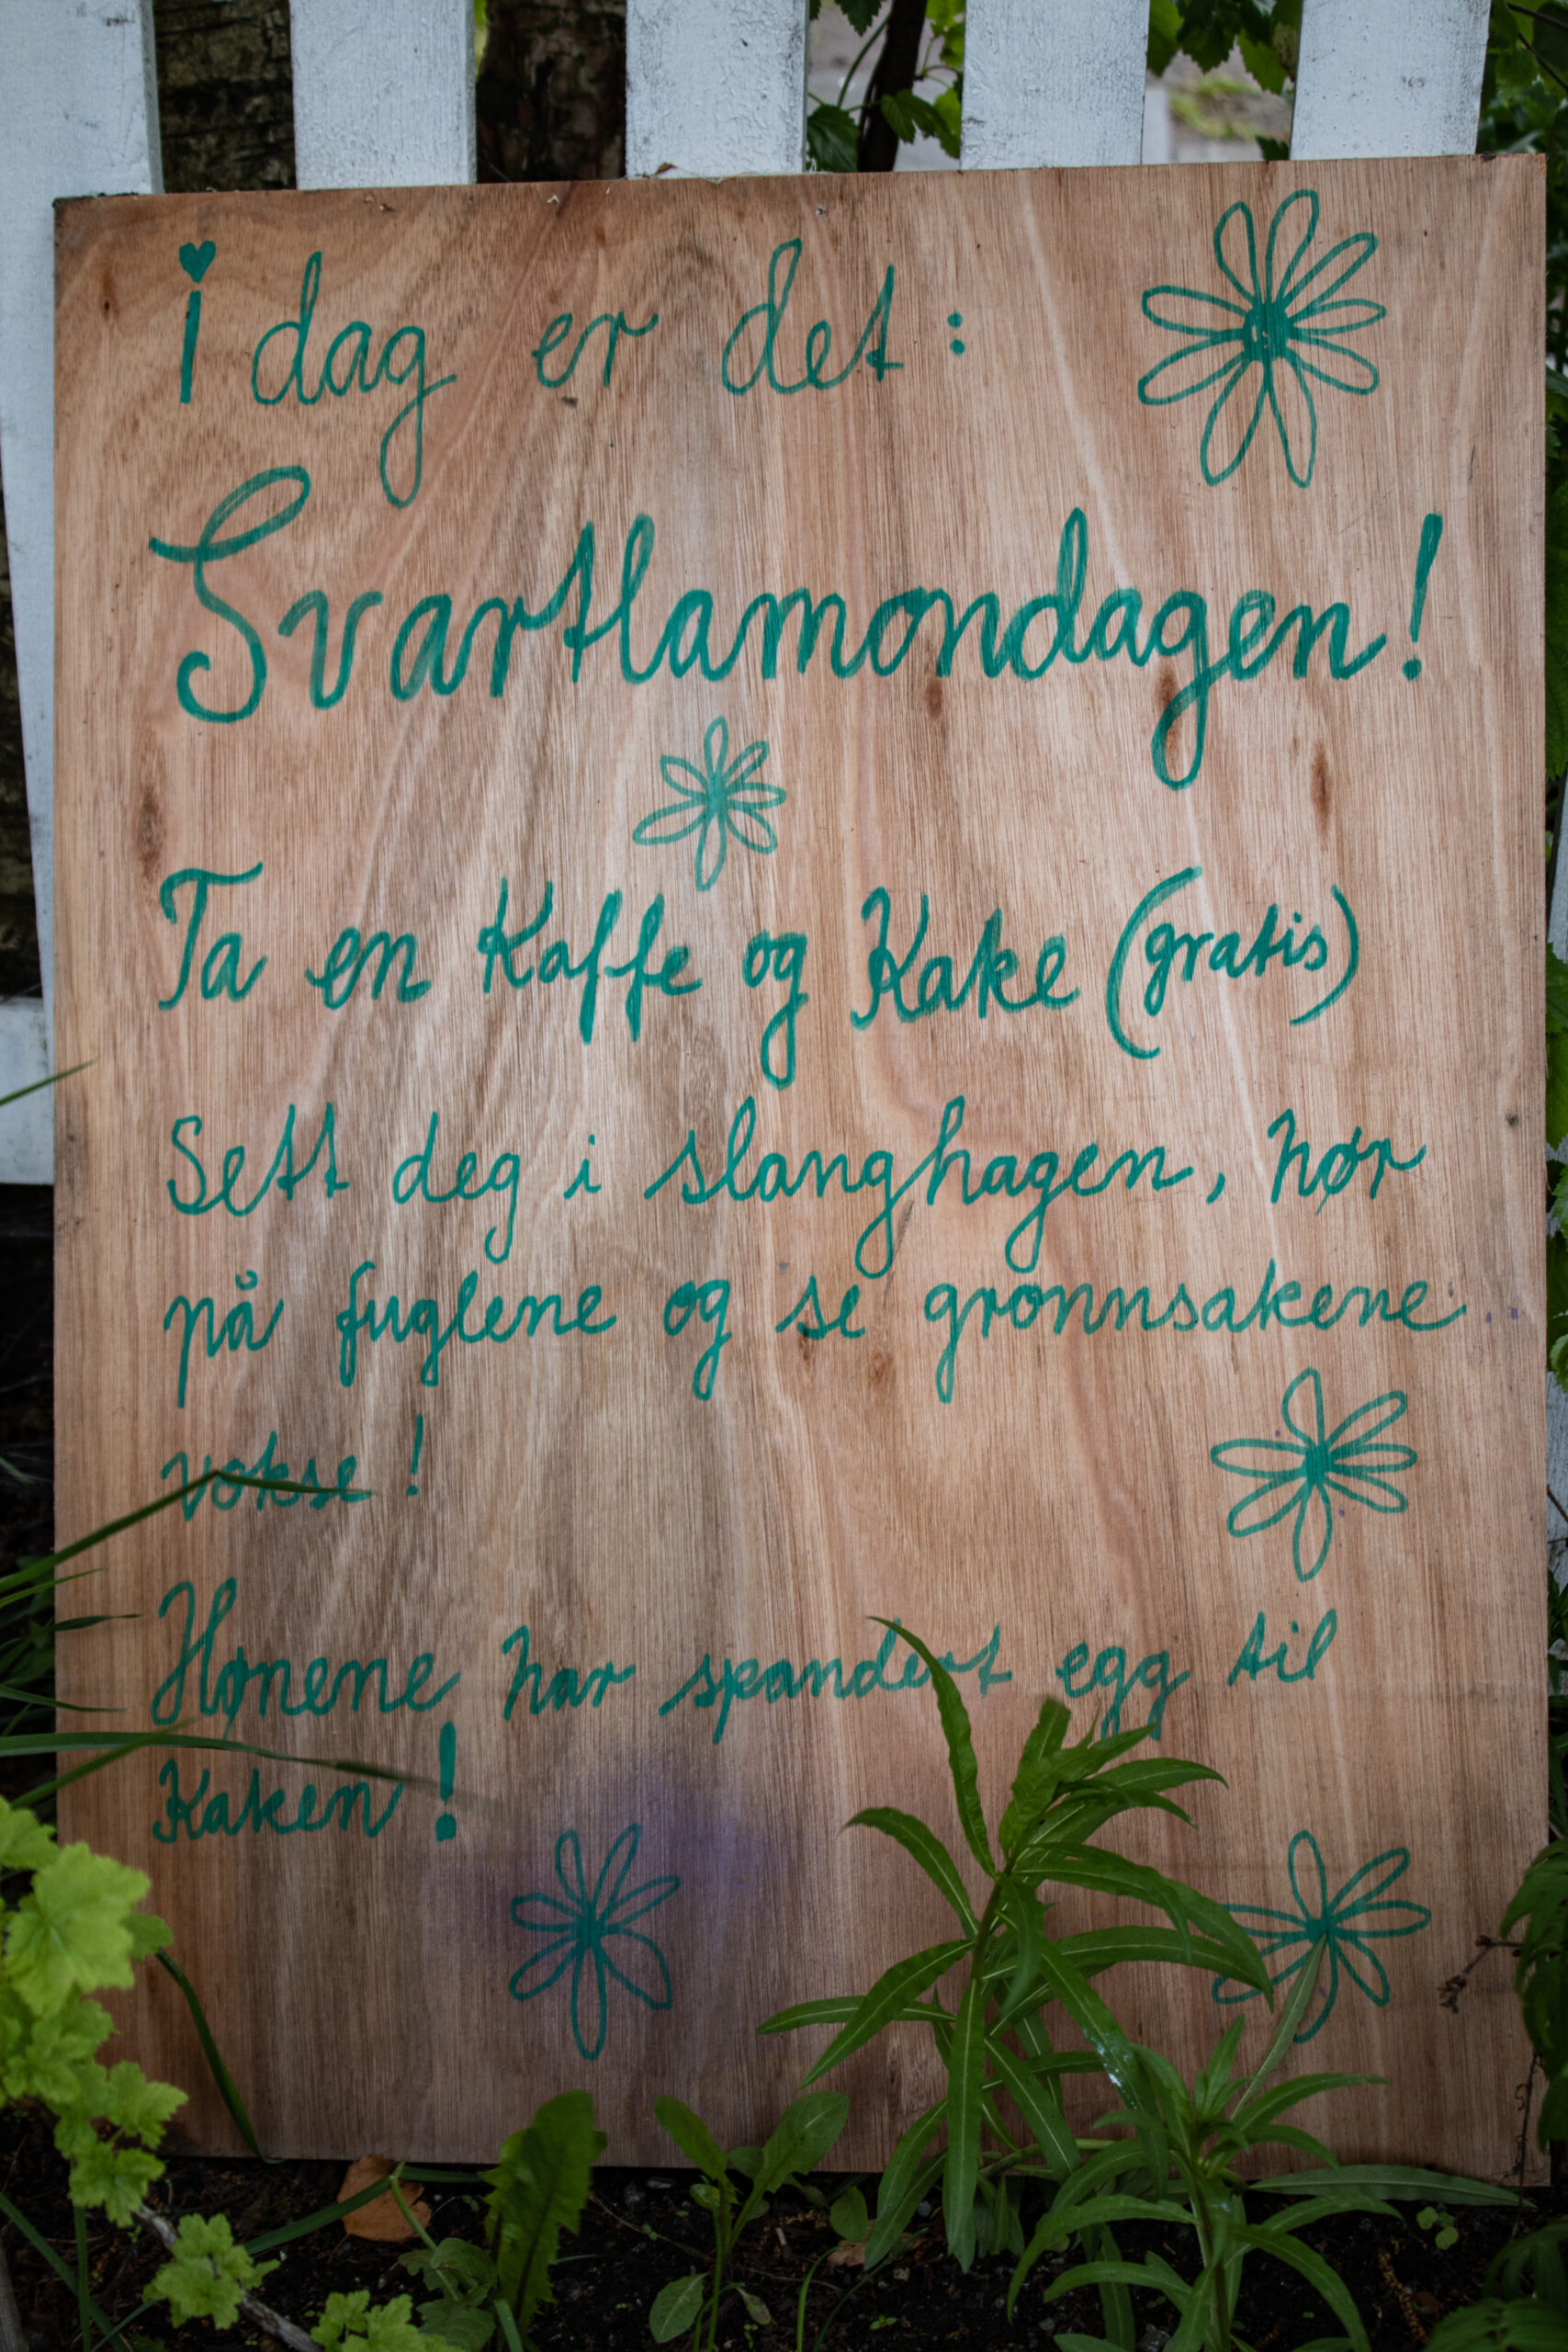 i dag er det :
Svartlamondagen!
Ta en Kaffe og Kake (gratis)
Sett deg i slanghagen, hør
på fuglene og se grønnsakene
vokse !
Hønene har spandert egg til
Kaken !